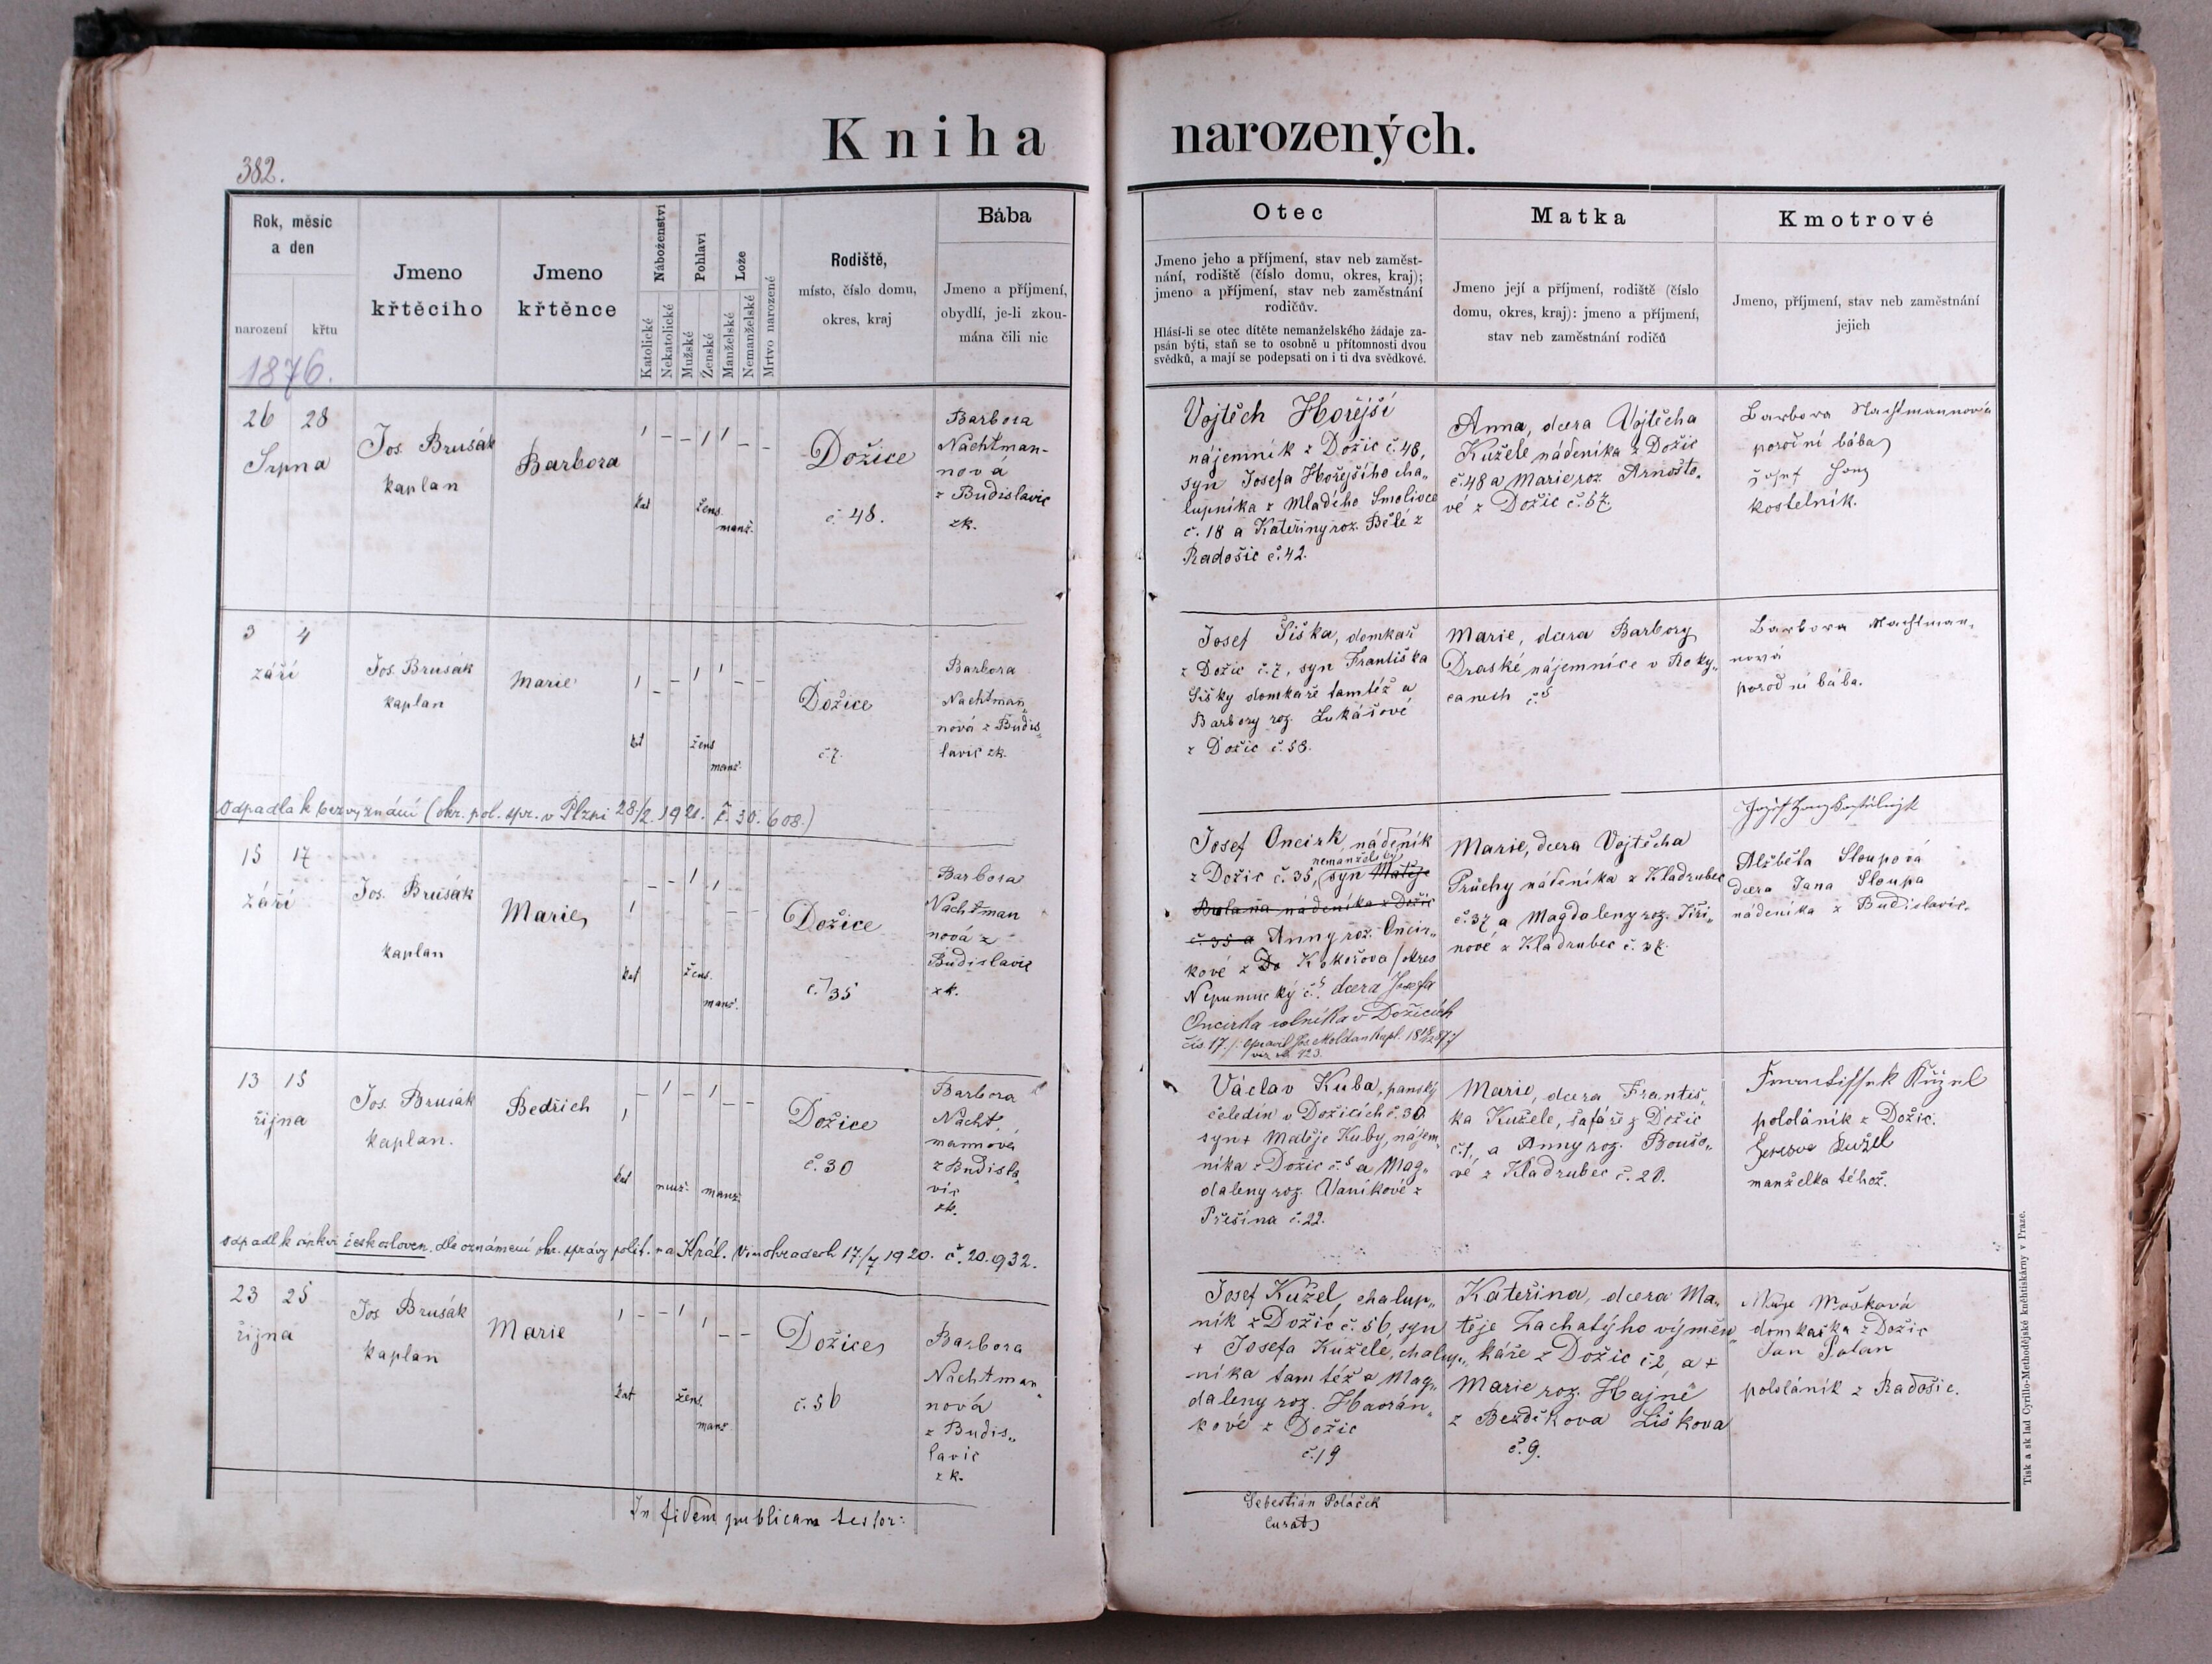 Kniha narozených.
382.
Rok, měsíc
a den
narození křtu
1876.
Jmeno
křtěcího
Jmeno
křtěnce
Náboženství
Katolické
Nekatolické
Pohlaví
Mužské
Ženské
Lože
Manželské
Nemanželské
Mrtvo narozené
Rodiště,
místo, číslo domu,
okres, kraj
Bába
Jmeno a příjmení,
obydlí, je-li zkou-
mána čili nic
Otec
Jmeno jeho a příjmení, stav neb zaměst-
nání, rodiště (číslo domu, okres, kraj);
jmeno a příjmení, stav neb zaměstnání
rodičův.
Hlásí-li se otec dítěte nemanželského žádaje za-
psán býti, staň se to osobně u přítomnosti dvou
svědků, a mají se podepsati on i ti dva svědkové.
Matka
Jmeno její a příjmení, rodiště (číslo
domu, okres, kraj): jmeno a příjmení,
stav neb zaměstnání rodičů
Kmotrové
Jmeno, příjmení, stav neb zaměstnání
jejich
26 28
Srpna
Jos. Brusák
kaplan
Barbora
kat
žens.
manž.
Dožice
č. 48.
Barbora
Nachtman-
nová
z Budislavic
zk.
Vojtěch Hořejší
nájemník z Dožic č. 48,
syn Josefa Hořejšího cha„
lupníka z Mladého Smolivce
č. 18 a Kateřiny roz. Bělé z
Radošic č. 42.
Anna, dcera Vojtěcha
Kužele nádeníka z Dožic
č. 48 a Marie roz. Arnošto„
vé z Dožic č. 57.
Barbora Nachtmannová
porodní bába
Josef Honz
kostelník.
3 4
září
Jos. Brusák
kaplan
Marie
kat
žens
manž.
Dožice
č. 7.
Barbora
Nachtman„
nová z Budis„
lavic zk.
Josef Šiška, domkař
z Dožic č. 7, syn Františka
Šišky domkaře tamtéž a
Barbory roz. Lukášové
z Dožic č. 58.
Marie, dcera Barbory
Draské, nájemnice v Roky„
canech č. 5
Barbora Nachtman„
nová
porodní bába.
Odpadla k bezvyznání (okr. pol. spr. v Plzni 28/2. 1921. č. 30.608.)
15 17
září
Jos. Brusák
kaplan
Marie
kat
žens.
manž.
Dožice
č. 35
Barbora
Nachtman
nová z
Budislavic
zk.
Josef Oncirk, nádeník
nemanželský
z Dožic č. 35, syn Matěje
nádeníka z Dožic
č. 35 a Anny roz. Oncir„
kové z Do Kokořova / okres
Nepomucký č. 5. dcera Josefa
Oncirka rolníka v Dožicích
čís. 17.
Marie, dcera Vojtěcha
Průchy nádeníka z Kladrubec
č. 37 a Magdaleny roz. Jiři„
nové z Kladrubec č. 37.
Alžběta Sloupová
dcera Jana Sloupa
nádeníka z Budislavic.
13 15
října
Jos. Brusák
kaplan.
Bedřich
kat
muž.
manž.
Dožice
č. 30
Barbora
Nacht„
mannová
z Budisla„
vic
zk.
Václav Kuba, panský
čeledín v Dožicích č. 30.
syn + Matěje Kuby, nájem„
níka z Dožic č. 5 a Mag„
daleny roz. Vaníkové z
Přešína č. 22.
Marie, dcera Františ„
ka Kužele, šafáře z Dožic
č. 1, a Anny roz. Boušo„
vé z Kladrubec č. 20.
Frantissek Kůžel
pololáník z Dožic.
Kužel
manželka téhož.
Odpadl k církvi českosloven. dle oznámení okr. správy polit. na Král. Vinohradech 17./7 1920. č. 20.932.
23 25
října
Jos. Brusák
kaplan
Marie
kat
žens.
manž
Dožice
č. 56
Barbora
Nachtman„
nová
z Budis„
lavic
zk.
Josef Kužel, chalup„
ník z Dožic č. 56, syn
+ Josefa Kužele, chalup„
níka tamtéž a Mag„
daleny roz. Havrán„
kové z Dožic
č. 19
Kateřina, dcera Ma„
těje Zachatýho výměn„
káře z Dožic č. 2, a +
Marie roz. Hajné
z Bezděkova Liškova
č. 9.
Mošková
domkařka z Dožic
Jan Šalan
pololáník z Radošic.
In fidem publicam testor:
Sebestián Poláček
curat
Tisk a sklad Cyrillo-Methodějské knihtiskárny v Praze.